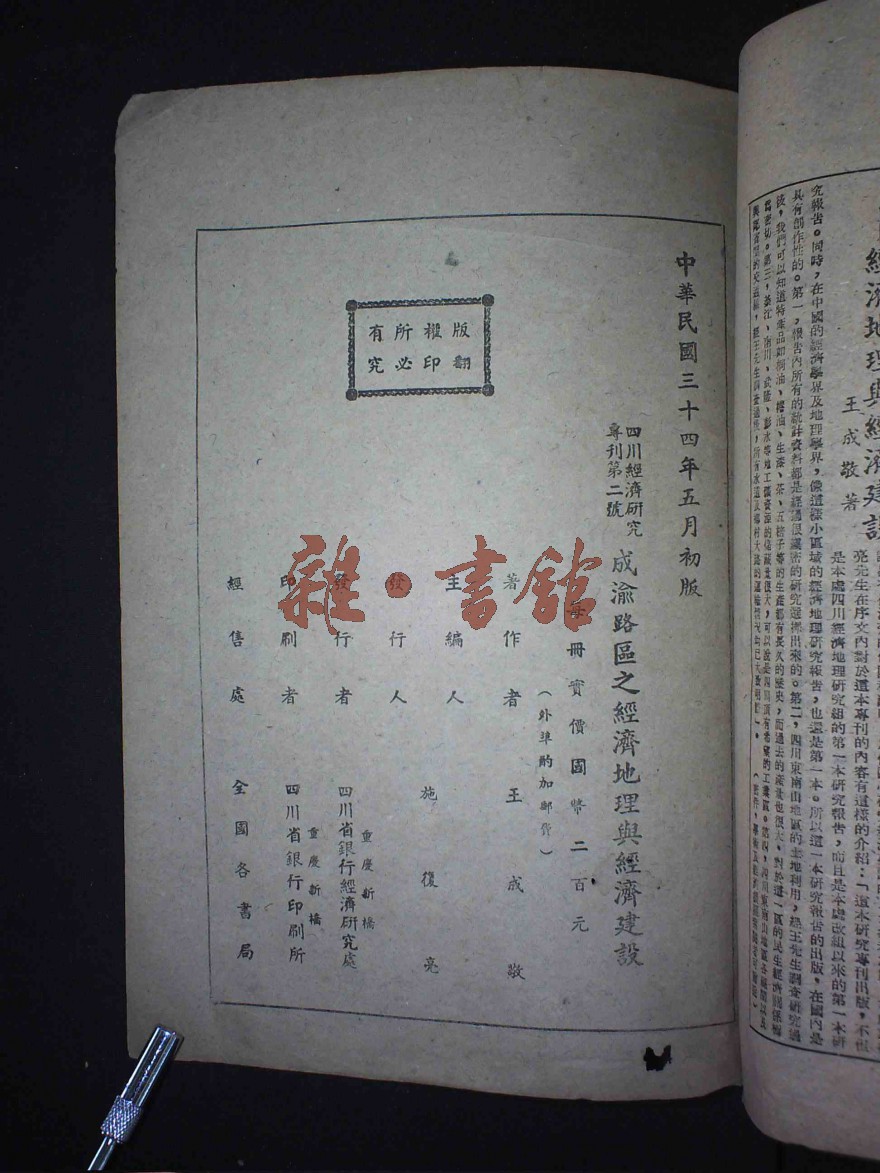 中華民國三十四年五月初版
四川經濟研究
專刊第二號
成渝路區之經濟地理與經濟建設
每冊實價國幣二百元
(外埠酌加郵費)
著作者 王成敬
主編人
發行人 施復亮
發行者 四川省銀行經濟研究處
重慶新橋
印刷者 四川省銀行印刷所
重慶新橋
經售處 全國各書局
版權所有
翻印必究
雜·書館
經濟地理與經濟建設
王成敬著
亮先生在序文內對於這本專刊的內容有這樣的介紹:「這本研究專刊出版,不但
是本處四川經濟地理研究組的第一本研究報告,而且是本處改組以來的第一本研
究報告。同時,在中國的經濟學界及地理學界,像這樣小區域的經濟地理研究報告,也還是第一本。所以這一本研究報告的出版,在國內是
具有創作性的。第一,報告內所有的統計資料都是經過很謹密的研究選擇出來的。第二,四川東南山地區的土地利用,經王先生調查研究過